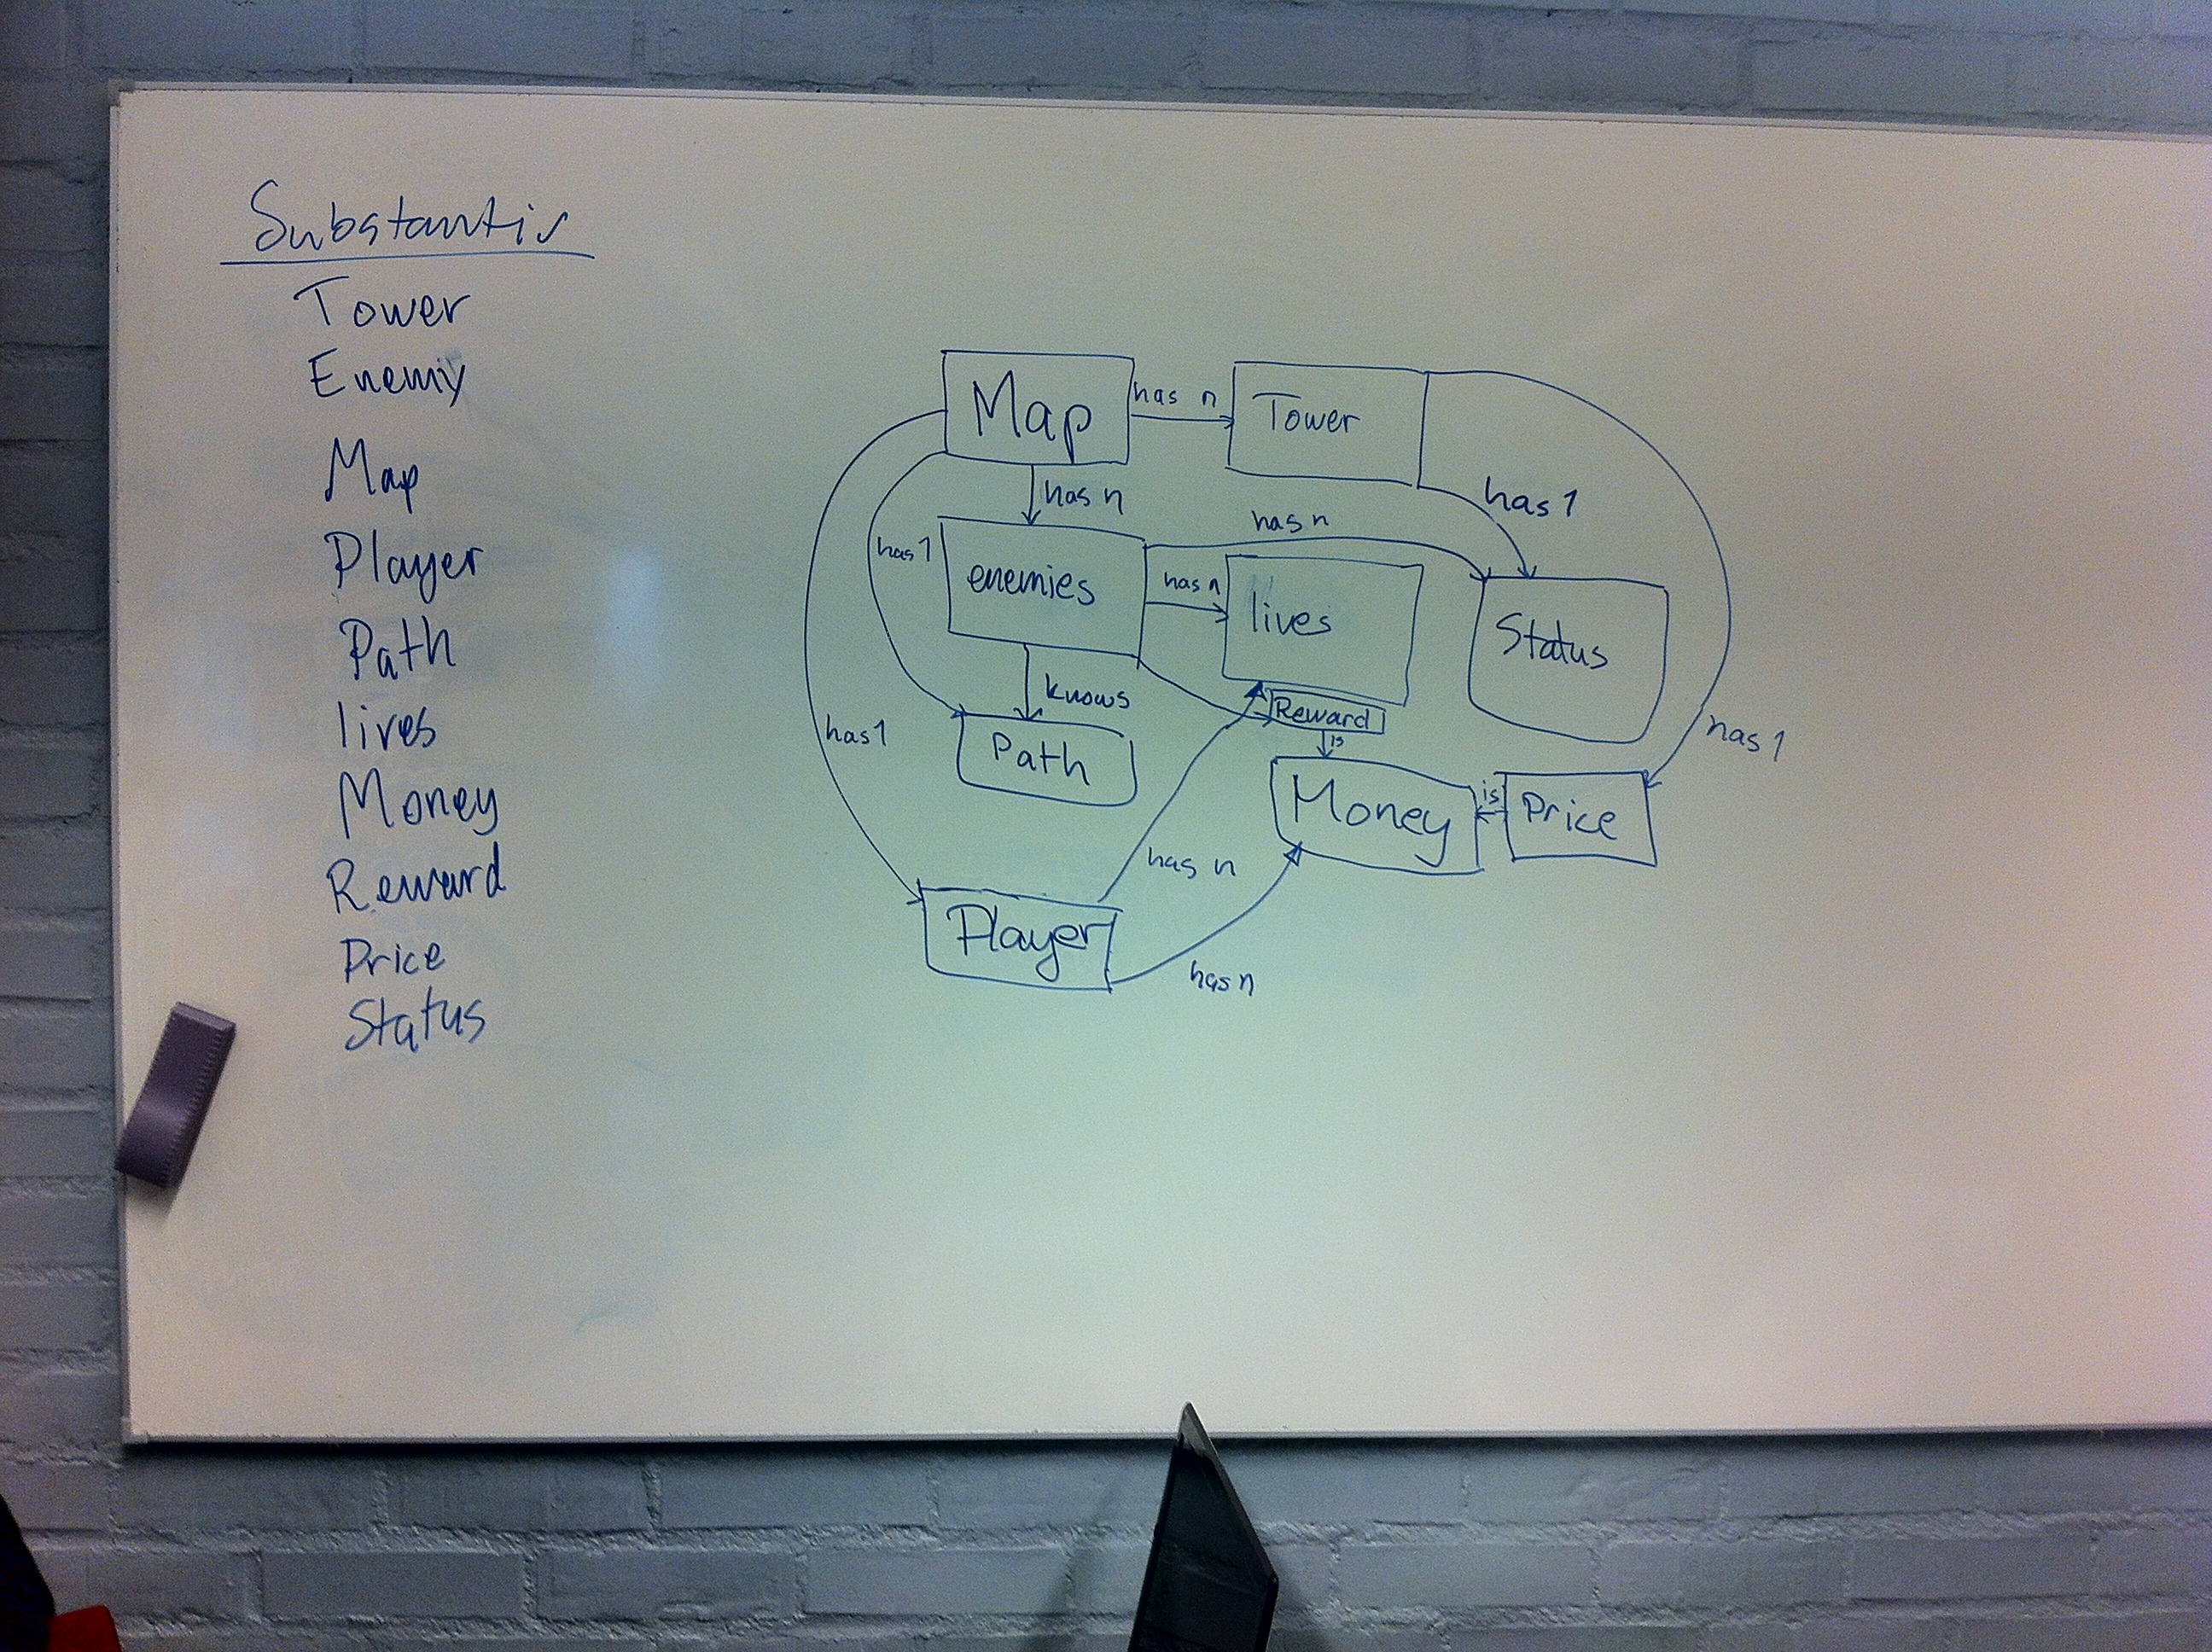 Substantiv
Tower
Enemy
Map
Player
Path
lives
Money
Reward
Price
Status
Map
has n
Tower
has n
has 1
has 1
enemies
has n
has n
lives
Status
knows
Reward
has 1
has 1
Path
is
Money
is
Price
has n
Player
has n